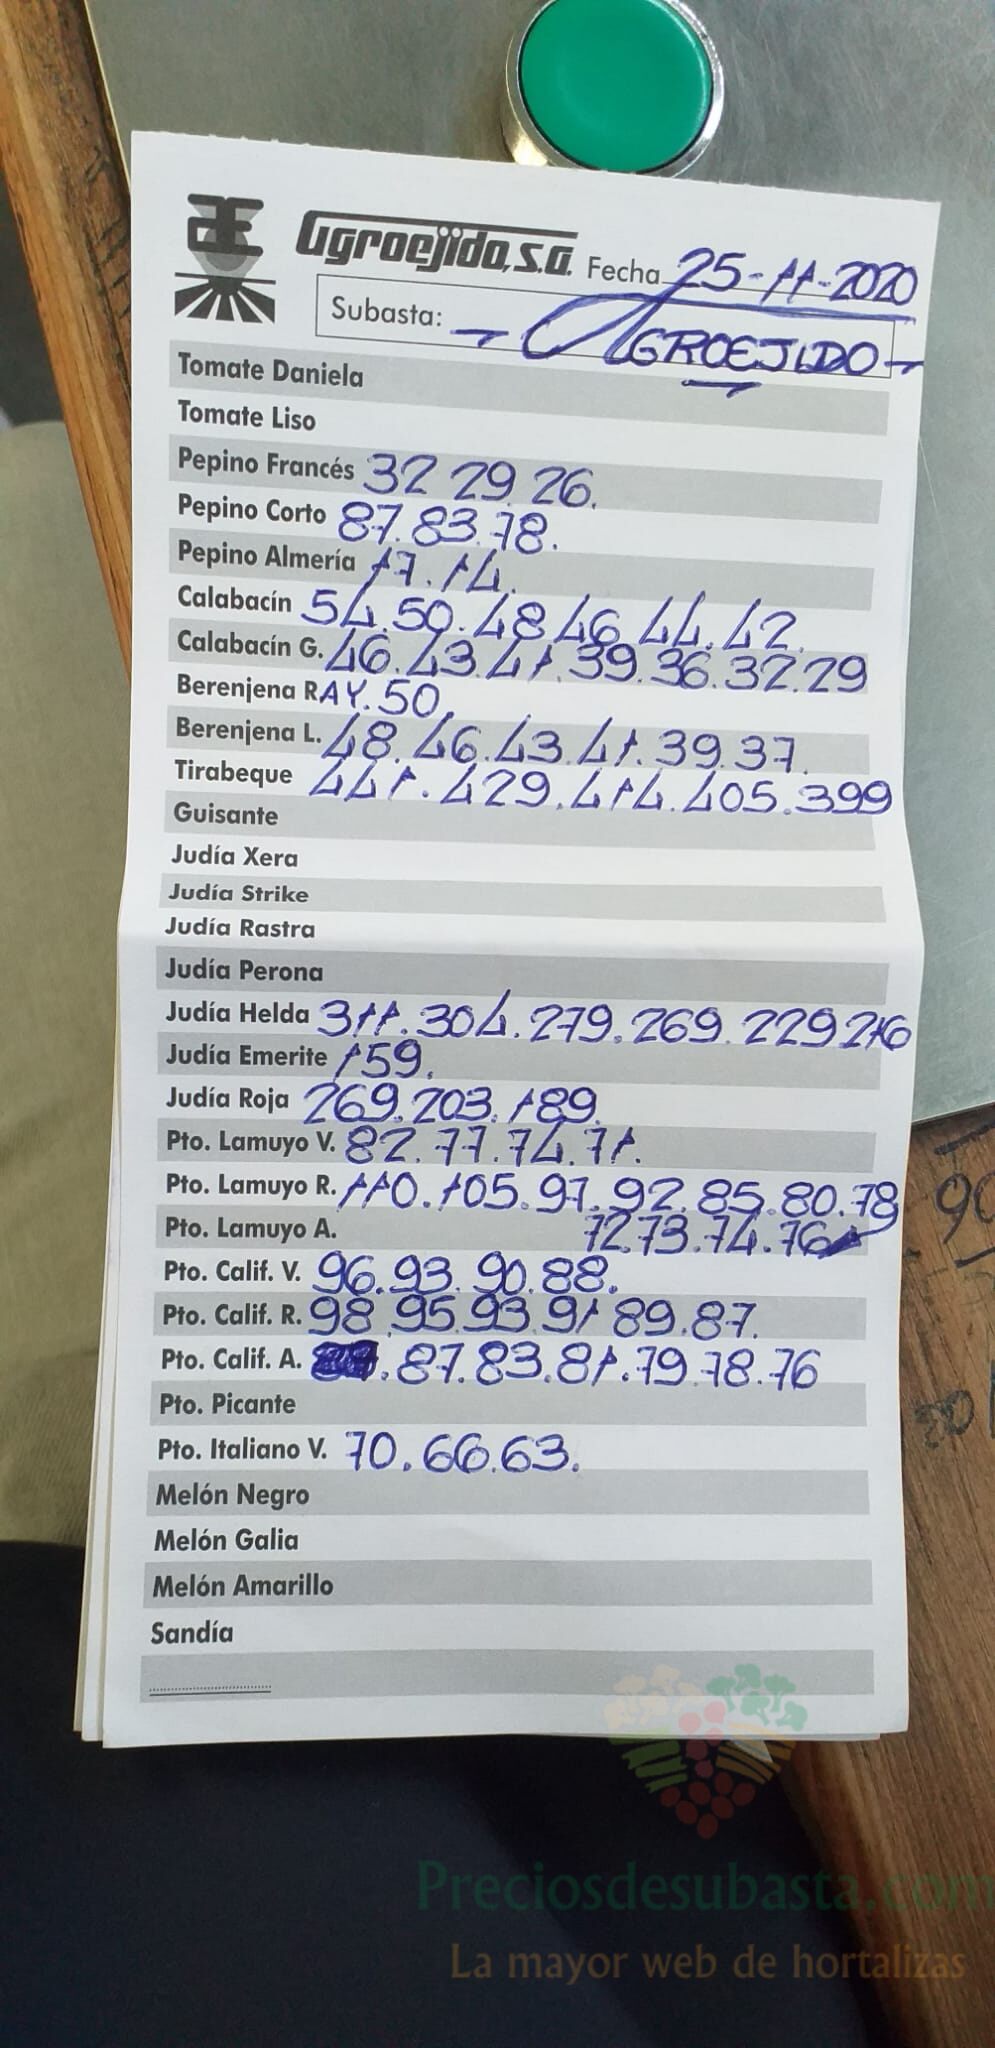 Agroejido, S.A. Fecha 25-11-2020
Subasta: - AGROEJIDO -
Tomate Daniela
Tomate Liso
Pepino Francés 32 29. 26.
Pepino Corto 87. 83. 78.
Pepino Almería 17. 14.
Calabacín 54. 50. 48 46 44. 42.
Calabacín G. 46. 43. 41. 39. 36. 32. 29
Berenjena RAY. 50.
Berenjena L. 48. 46. 43. 41. 39. 37.
Tirabeque 441. 429. 414. 405. 399
Guisante
Judía Xera
Judía Strike
Judía Rastra
Judía Perona
Judía Helda 311. 304. 279. 269. 229 216
Judía Emerite 159.
Judía Roja 269. 203. 189.
Pto. Lamuyo V. 82. 77. 74. 71.
Pto. Lamuyo R. 110. 105. 97. 92. 85. 80. 78
Pto. Lamuyo A. 72. 73. 74. 76
Pto. Calif. V. 96. 93. 90. 88.
Pto. Calif. R. 98 95. 93. 91 89. 87.
Pto. Calif. A. . 87. 83. 81. 79. 78. 76
Pto. Picante
Pto. Italiano V. 70. 66. 63.
Melón Negro
Melón Galia
Melón Amarillo
Sandía
Preciosdesubasta.com
La mayor web de hortalizas